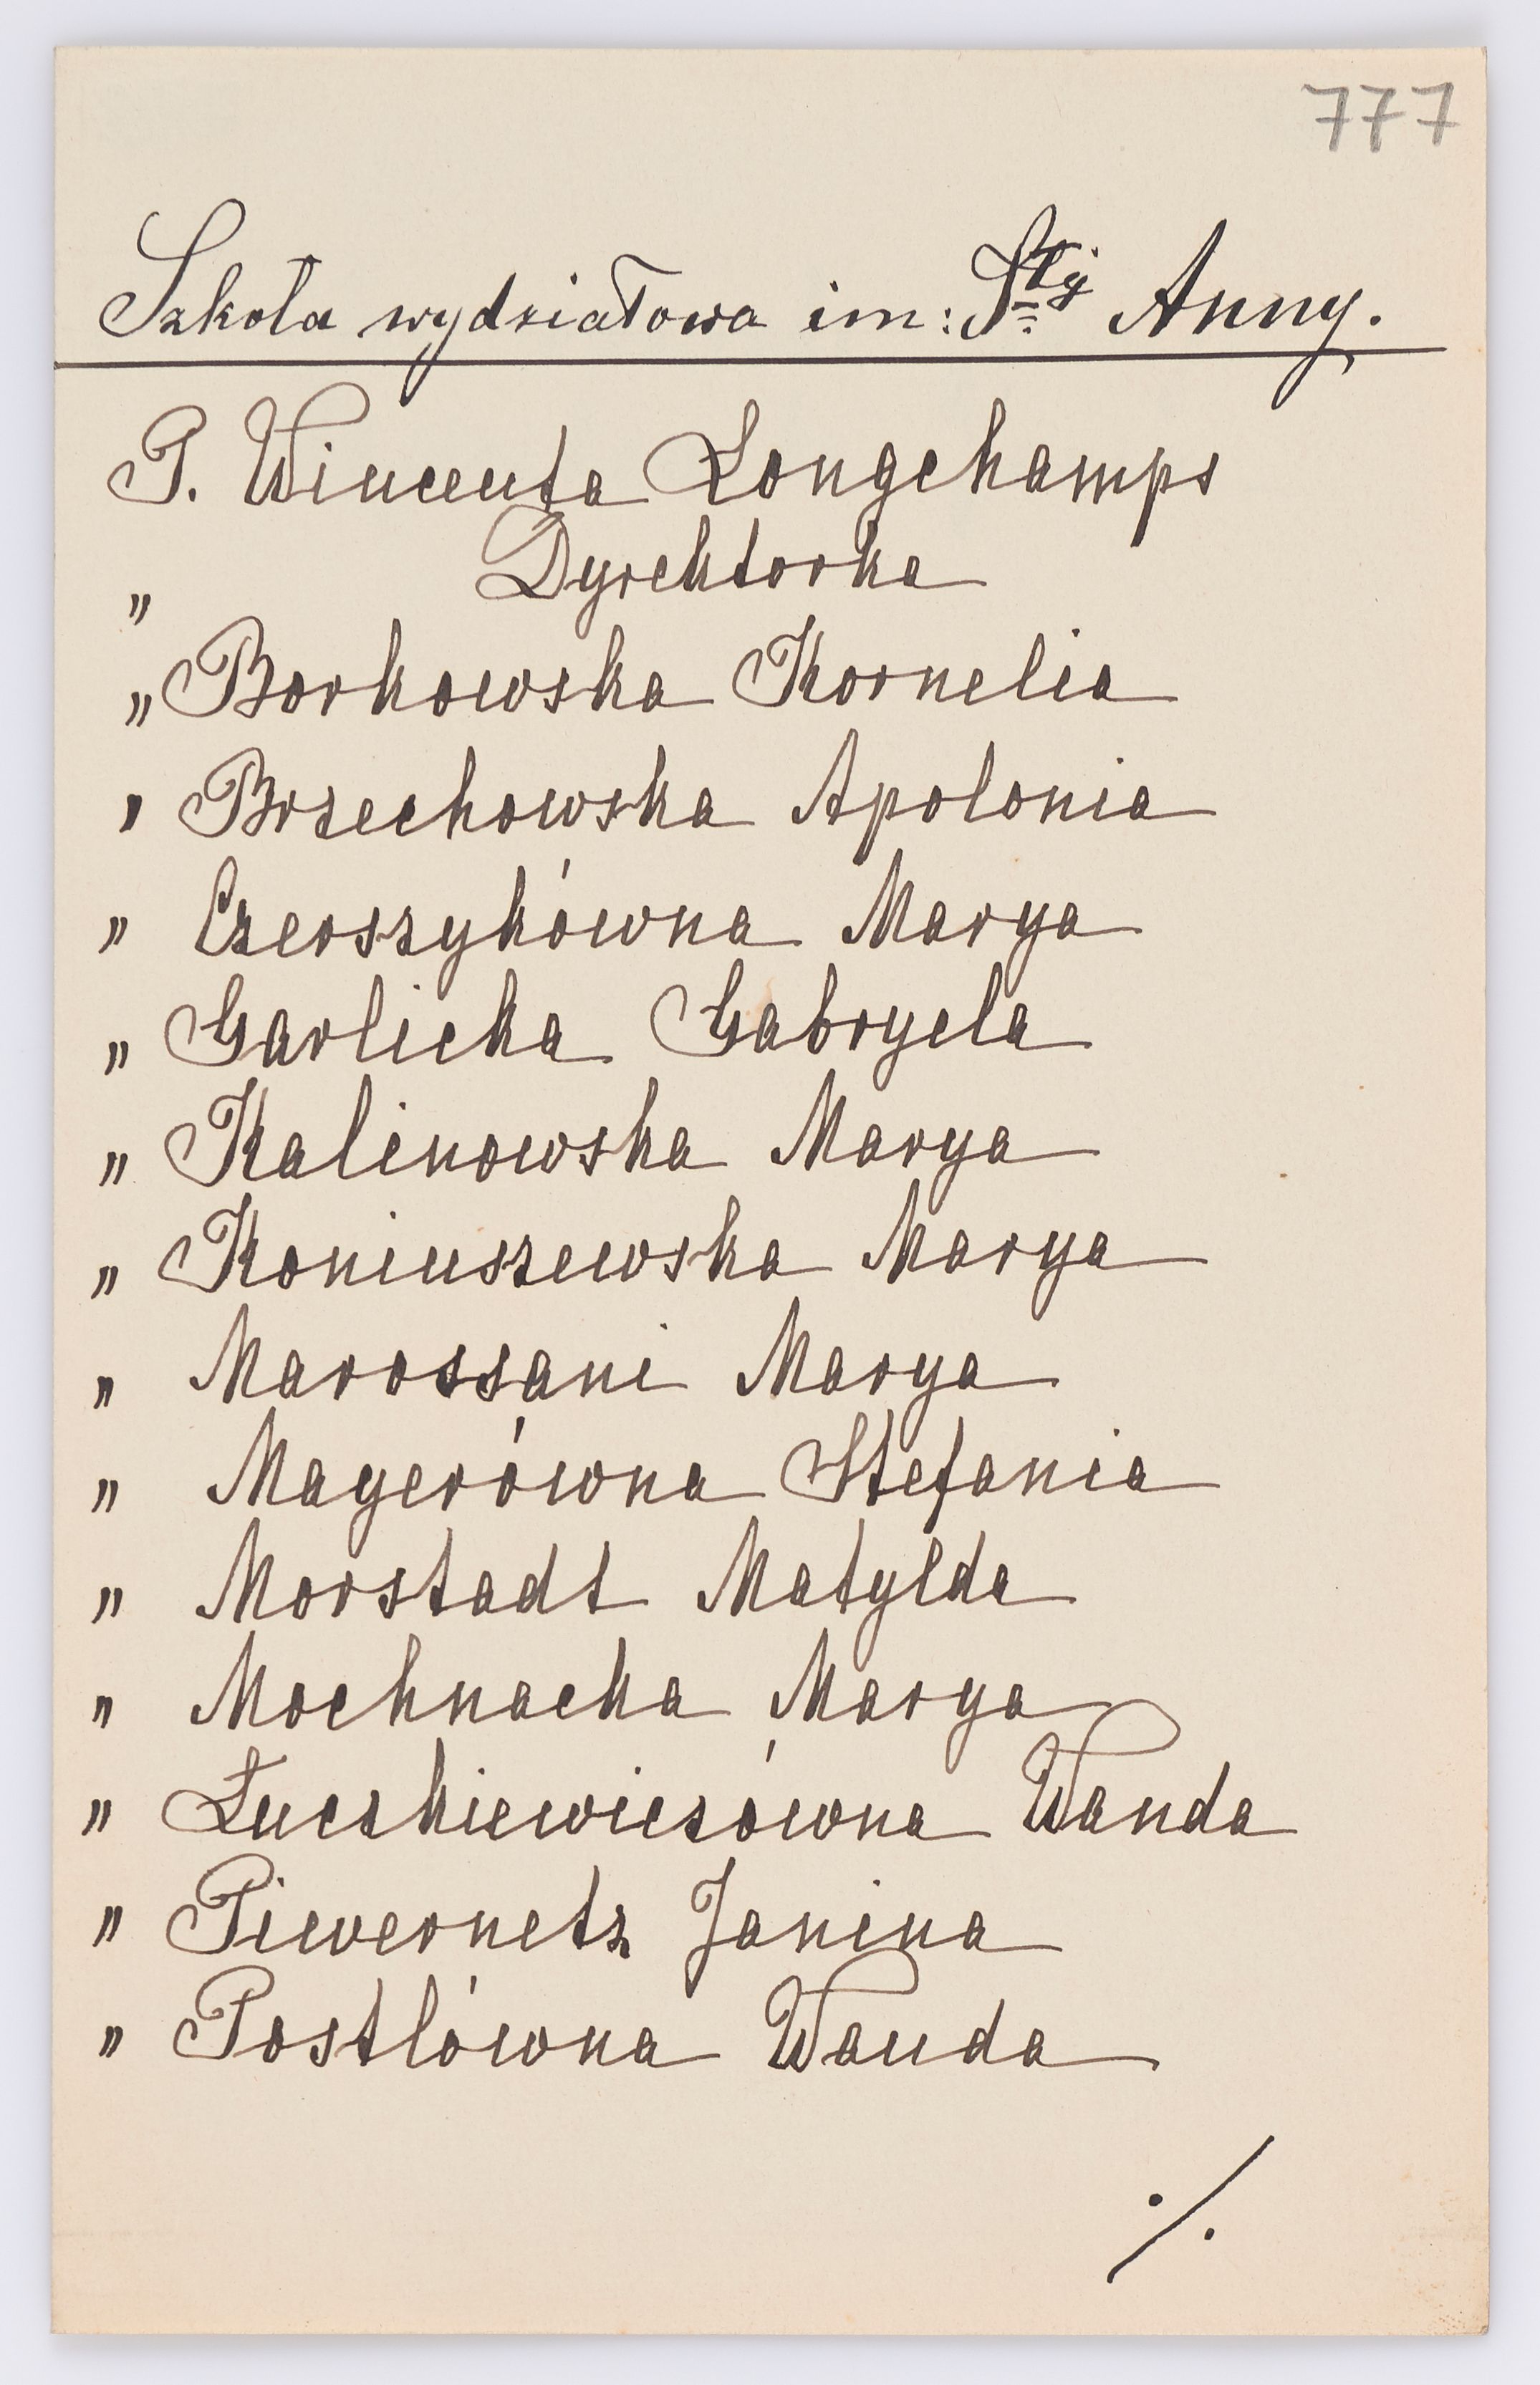 777
Szkoła wydziałowa im: Stej Anny.
P. Wincenta Longchamps
„ Dyrektorka
„ Borkowska Kornelia
„ Brzechowska Apolonia
„ Czerszykówna Marya
„ Garlicka Gabryela
„ Kalinowska Marya
„ Koniuszewska Marya
„ Marossani Marya
„ Mayerówna Stefania
„ Morstadt Matylda
„ Mochnacka Marya
„ Łuczkiewiczówna Wanda
„ Piwernetz Janina
„ Postlówna Wanda
./.